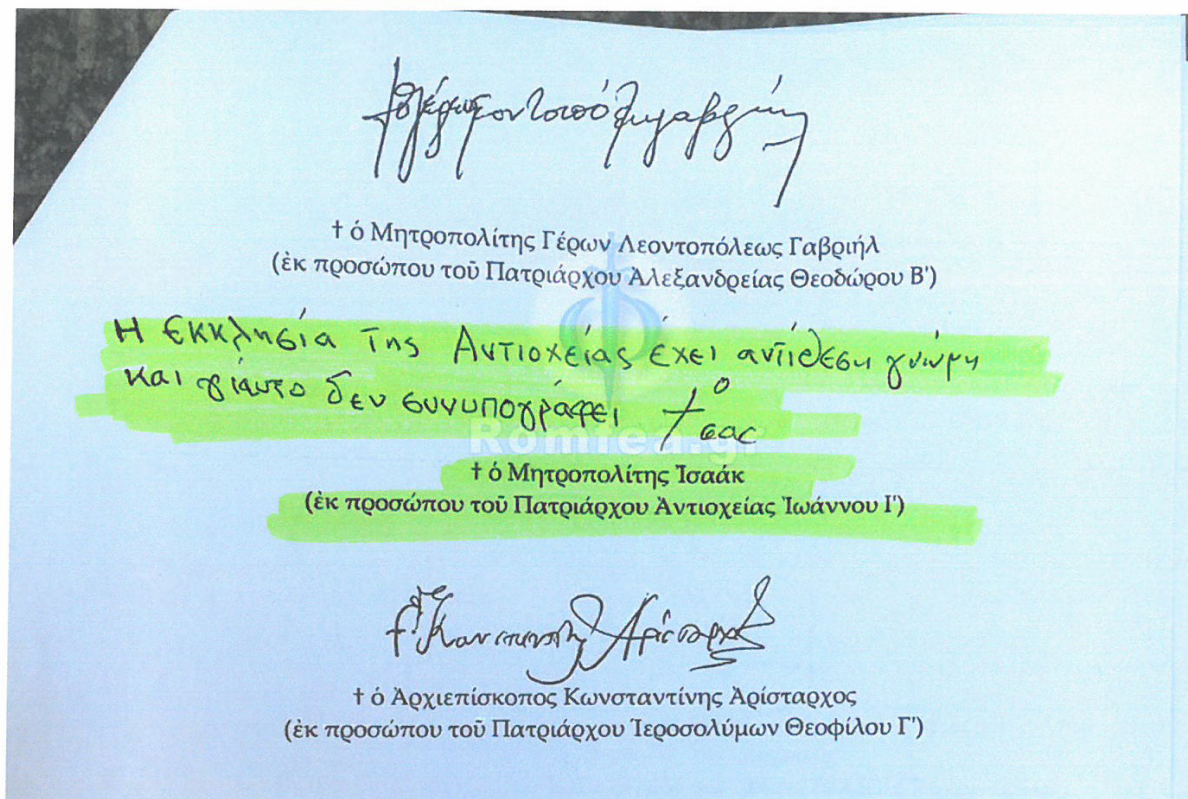 † ὁ Μητροπολίτης Γέρων Λεοντοπόλεως Γαβριήλ
(ἐκ προσώπου τοῦ Πατριάρχου Ἀλεξανδρείας Θεοδώρου Β')
Η Εκκλησία της Αντιοχείας έχει αντίθεση γνώμη
και γίαυτο δεν συνυπογράφει † ο
σας
Romfea.gr
† ὁ Μητροπολίτης Ἰσαάκ
(ἐκ προσώπου τοῦ Πατριάρχου Ἀντιοχείας Ἰωάννου Ι')
† ὁ Ἀρχιεπίσκοπος Κωνσταντίνης Ἀρίσταρχος
(ἐκ προσώπου τοῦ Πατριάρχου Ἱεροσολύμων Θεοφίλου Γ')